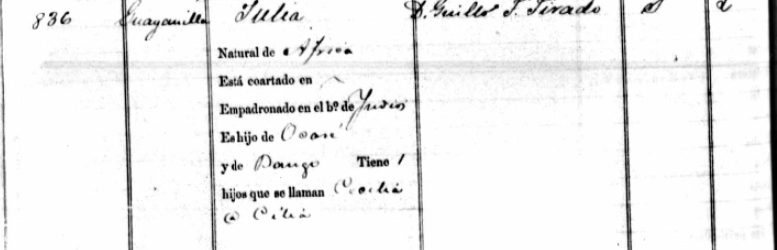 836 Guayanilla Julia D. Guillo T. Tirado S 2
Natural de Africa
Está coartado en
Empadronado en el bº de Indios
Es hijo de Osané
y de Dango Tiene 1
hijos que se llaman Cecilia
@ Cilia